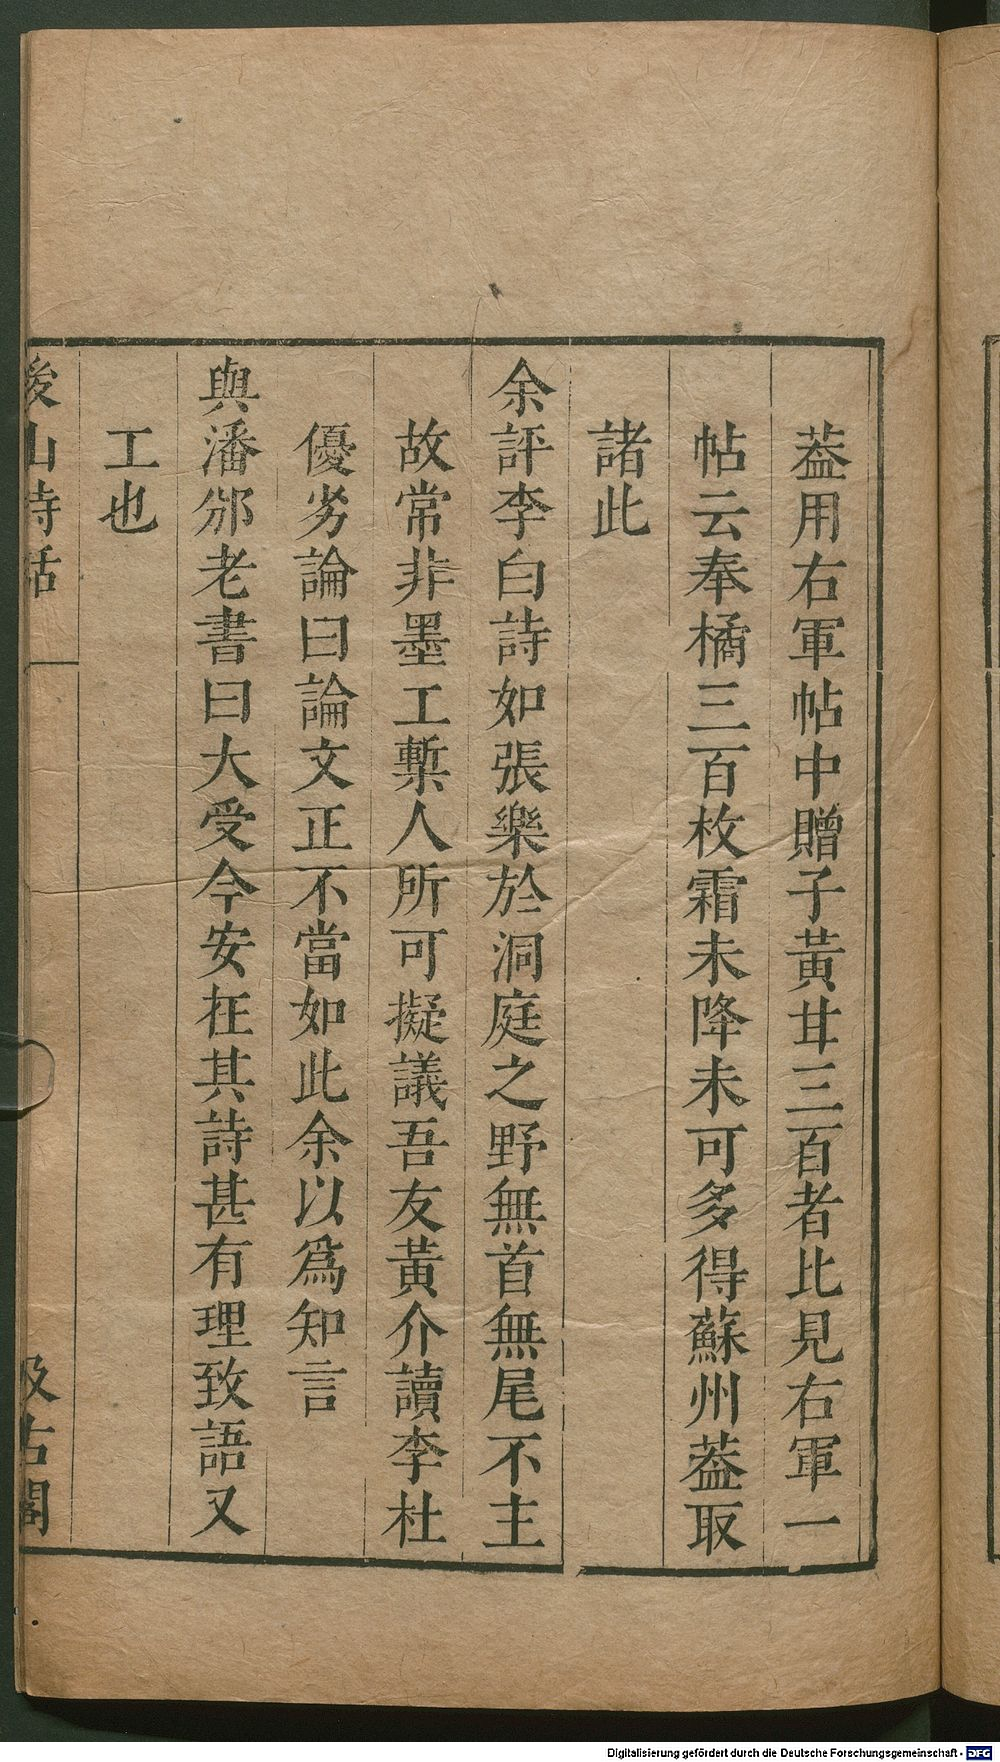 葢用右軍帖中贈子黃甘三百者比見右軍一
帖云奉橘三百枚霜未降未可多得蘇州葢取
諸此
余評李白詩如張樂於洞庭之野無首無尾不主
故常非墨工槧人所可擬議吾友黃介讀李杜
優劣論曰論文正不當如此余以爲知言
與潘邠老書曰大受今安在其詩甚有理致語又
工也
後山詩話
汲古閣
Digitalisierung gefördert durch die Deutsche Forschungsgemeinschaft - DFG